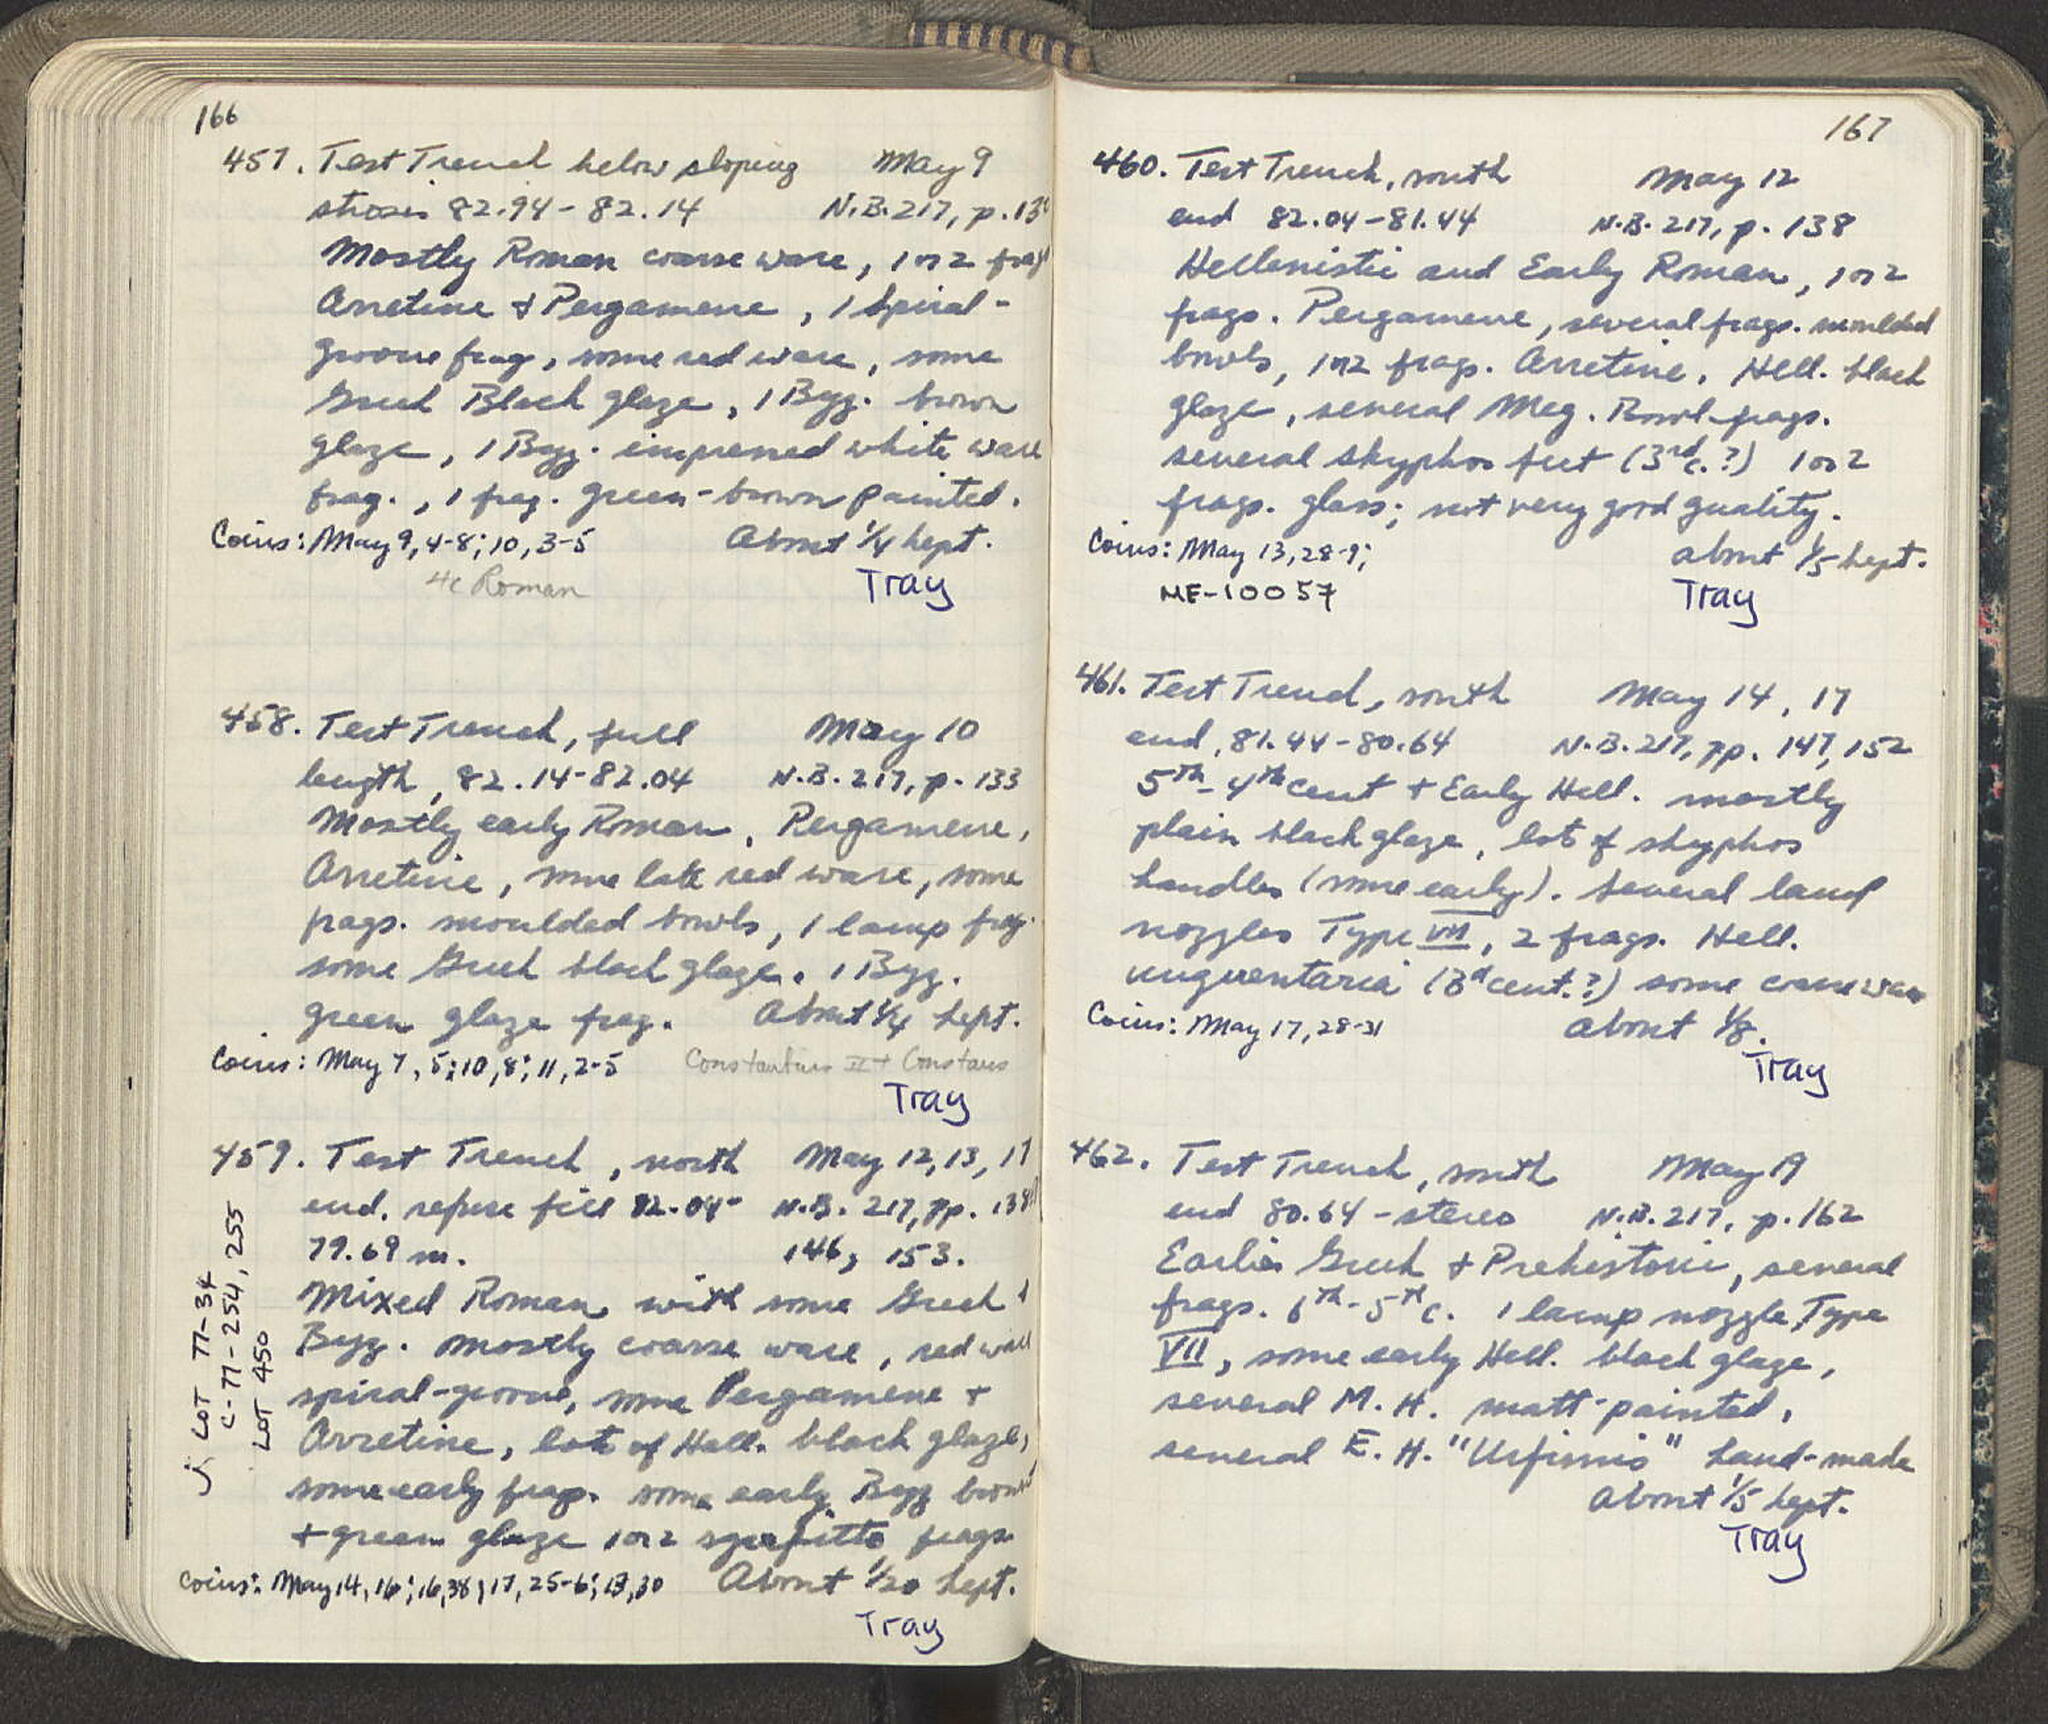 166
457. Test Trench below sloping May 9
strosis 82.94-82.14 N.B. 217, p.
Mostly Roman coarse ware, 1 or 2 frag
Arretine + Pergamene, 1 spiral-
groove frag, some red ware, some
Greek Black glaze, 1 Byz. brown
glaze, 1 Byz. impressed white ware
frag., 1 frag. green-brown painted.
Coins: May 9, 4-8; 10, 3-5 About 1/4 kept.
4c Roman Tray
458. Test Trench, full May 10
length, 82.14-82.04 N.B. 217, p. 133
Mostly early Roman, Pergamene,
Arretine, some late red ware, some
frags. moulded bowls, 1 lamp frag.
some Greek black glaze. 1 Byz.
green glaze frag. About 1/4 kept.
Coins: May 7, 5; 10, 8; 11, 2-5 Constantius II + Constans
Tray
459. Test Trench, north May 12, 13, 17
end. refuse fill 82.04- N.B. 217, pp. 138
79.69 m. 146, 153.
Mixed Roman with some Greek +
Byz. mostly coarse ware, red ware
spiral-groove, some Pergamene +
Arretine, lots of Hell. black glaze,
some early frags. some early Byz brown
+ green glaze 1 or 2 sgrafitto frags
Coins: May 14, 16; 16, 38; 17, 25-6; 13, 30 About 1/20 kept.
Tray
LOT 77-34
C-77-254, 255
LOT 450
167
460. Test Trench, south May 12
end 82.04-81.44 N.B. 217, p. 138
Hellenistic and Early Roman, 1 or 2
frags. Pergamene, several frags. moulded
bowls, 1 or 2 frags. Arretine, Hell. black
glaze, several Meg. Bowl frags.
several skyphos feet (3rd c.?) 1 or 2
frags. glass; not very good quality.
Coins: May 13, 28-9; about 1/5 kept.
MF-10057 Tray
461. Test Trench, south May 14, 17
end, 81.44-80.64 N.B. 217, pp. 147, 152
5th-4th cent + Early Hell. mostly
plain black glaze, lots of skyphos
handles (some early). Several lamp
nozzles Type VII, 2 frags. Hell.
unguentaria (3d cent.?) some coarse ware
Coins: May 17, 28-31 About 1/8.
Tray
462. Test Trench, south May 19
end 80.64-stereo N.B. 217, p. 162
Earlier Greek + Prehistoric, several
frags. 6th-5th c. 1 lamp nozzle Type
VII, some early Hell. black glaze,
several M.H. matt-painted,
several E.H. "Urfirnis" hand-made
About 1/5 kept.
Tray